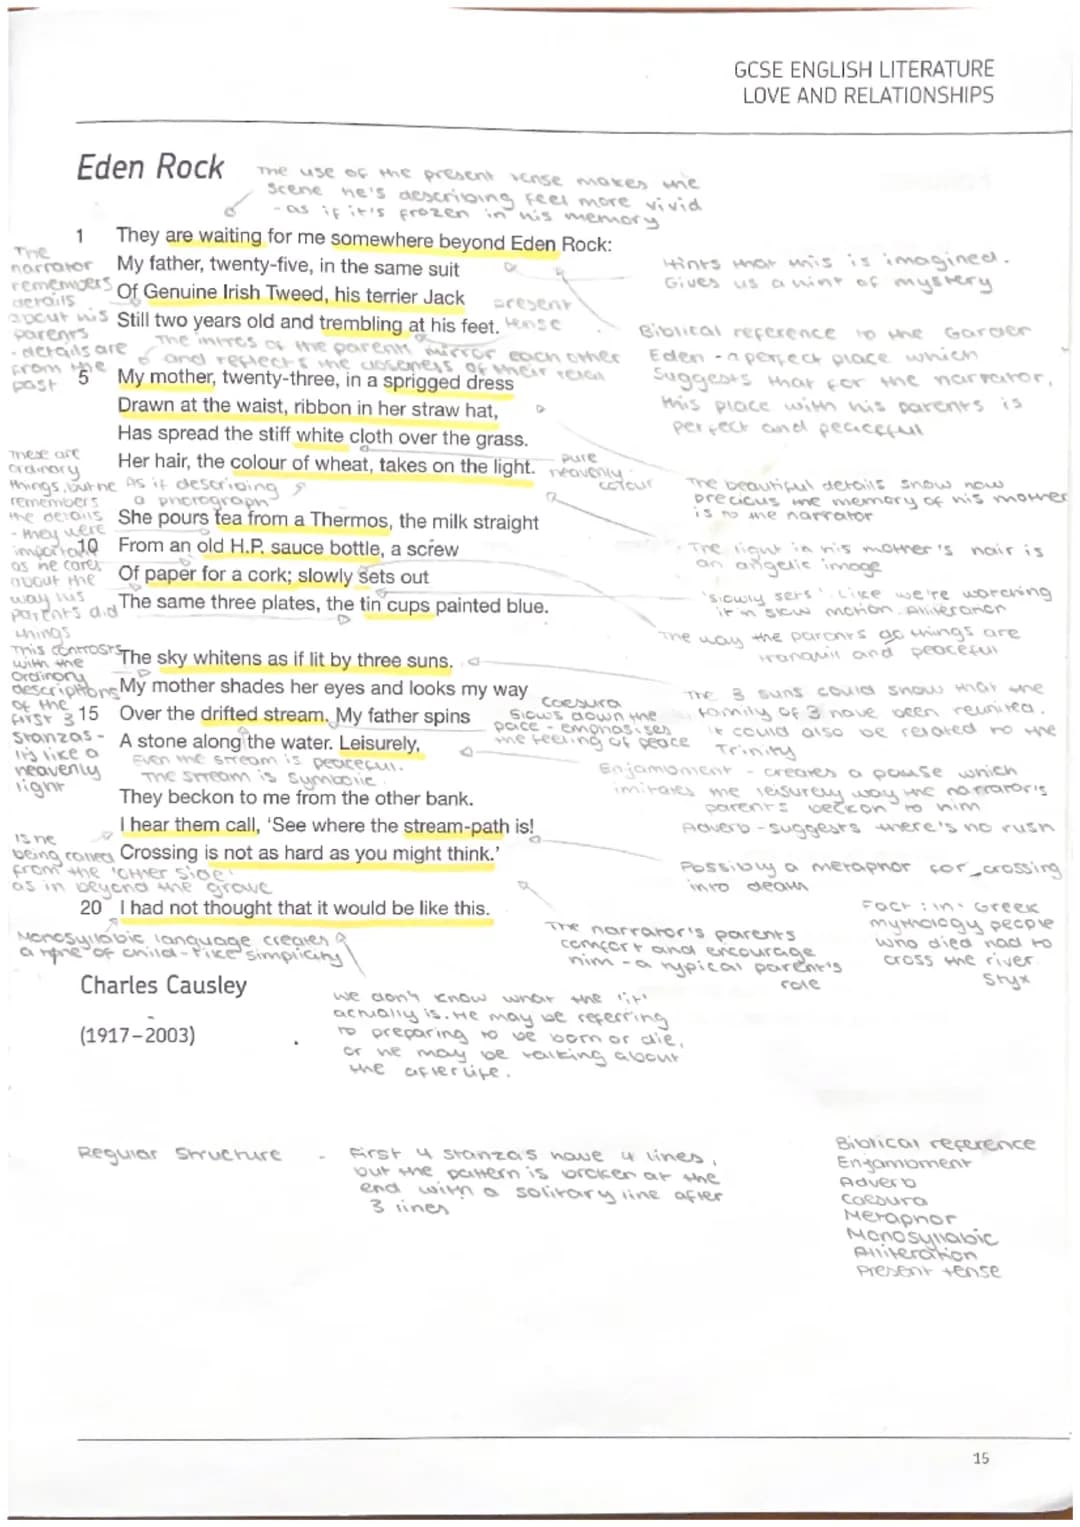 GCSE ENGLISH LITERATURE
LOVE AND RELATIONSHIPS
Eden Rock
The use of the present tense makes the
scene he's describing feel more vivid
- as if it's frozen in his memory
1 They are waiting for me somewhere beyond Eden Rock:
My father, twenty-five, in the same suit
Of Genuine Irish Tweed, his terrier Jack
Still two years old and trembling at his feet.
present
tense
The
narrator
remembers
details
about his
parents
- details are
from the
past
The intres of the parents mirror each other
and reflects the closeness of their
5 My mother, twenty-three, in a sprigged dress
Drawn at the waist, ribbon in her straw hat,
Has spread the stiff white cloth over the grass.
Her hair, the colour of wheat, takes on the light.
pure
heavenly
colour
Hints that this is imagined.
Gives us a hint of mystery
Biblical reference to the Garden
Eden - a perfect place which
suggests that for the narrator,
this place with his parents is
perfect and peaceful
These are
ordinary
things, but he
remembers
the details
- they were
important
as he cares
about the
way his
parents did
things
As if describing
a photograph
She pours tea from a Thermos, the milk straight
10 From an old H.P. sauce bottle, a screw
Of paper for a cork; slowly sets out
The same three plates, the tin cups painted blue.
The beautiful details show how
precious the memory of his mother
is to the narrator
The light in his mother's hair is
an angelic image
'slowly sets'. Like we're watching
it in slow motion. Alliteration
The way the parents do things are
tranquil and peaceful
This contrasts
with the
ordinary
descriptions
of the
first 3
stanzas -
It's like a
heavenly
light
The sky whitens as if lit by three suns.
My mother shades her eyes and looks my way
15 Over the drifted stream. My father spins
A stone along the water. Leisurely,
Even the stream is peaceful.
The stream is symbolic
Caesura
Slows down the
pace - emphasises
the feeling of peace
The 3 suns could show that the
family of 3 have been reunited.
It could also be related to the
Trinity
Enjambment - creates a pause which
imitates the leisurely way the narrator's
parents beckon to him
Adverb - suggests there's no rush
They beckon to me from the other bank.
I hear them call, 'See where the stream-path is!
Crossing is not as hard as you might think.'
Is he
being called
from the 'other side'
as in beyond the grave
Possibly a metaphor for crossing
into death
20 I had not thought that it would be like this.
Monosyllabic language creates
a tone of child-like simplicity
The narrator's parents
comfort and encourage
him - a typical parent's
role
Fact: in Greek
mythology people
who died had to
cross the river
Styx
Charles Causley
(1917–2003)
We don't know what the 'it'
actually is. He may be referring
to preparing to be born or die,
or he may be talking about
the afterlife.
Regular Structure - First 4 stanzas have 4 lines,
but the pattern is broken at the
end with a solitary line after
3 lines
Biblical reference
Enjambment
Adverb
Caesura
Metaphor
Monosyllabic
Alliteration
Present tense
15